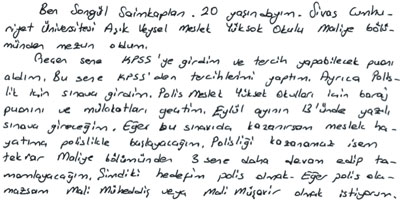 Ben Songül Saimkaplan. 20 yaşındayım. Sivas Cumhu-
riyet Üniversitesi Aşık Veysel Meslek Yüksek Okulu Maliye bölü-
münden mezun oldum.
Geçen sene KPSS'ye girdim ve tercih yapabilecek puanı
aldım. Bu sene KPSS'den tercihlerimi yaptım. Ayrıca Polis-
lik için sınava girdim. Polis Meslek Yüksek Okulları için baraj
puanını ve mülakatları geçtim. Eylül ayının 13'ünde yazılı
sınava gireceğim. Eğer bu sınavıda kazanırsam meslek ha-
yatıma polislikle başlayacağım. Polisliği kazanamaz isem
tekrar Maliye bölümünden 3 sene daha devam edip ta-
mamlayacağım. Şimdiki hedefim polis olmak. Eğer polis ola-
mazsam Mali Mühendis veya Mali Müşavir olmak istiyorum.